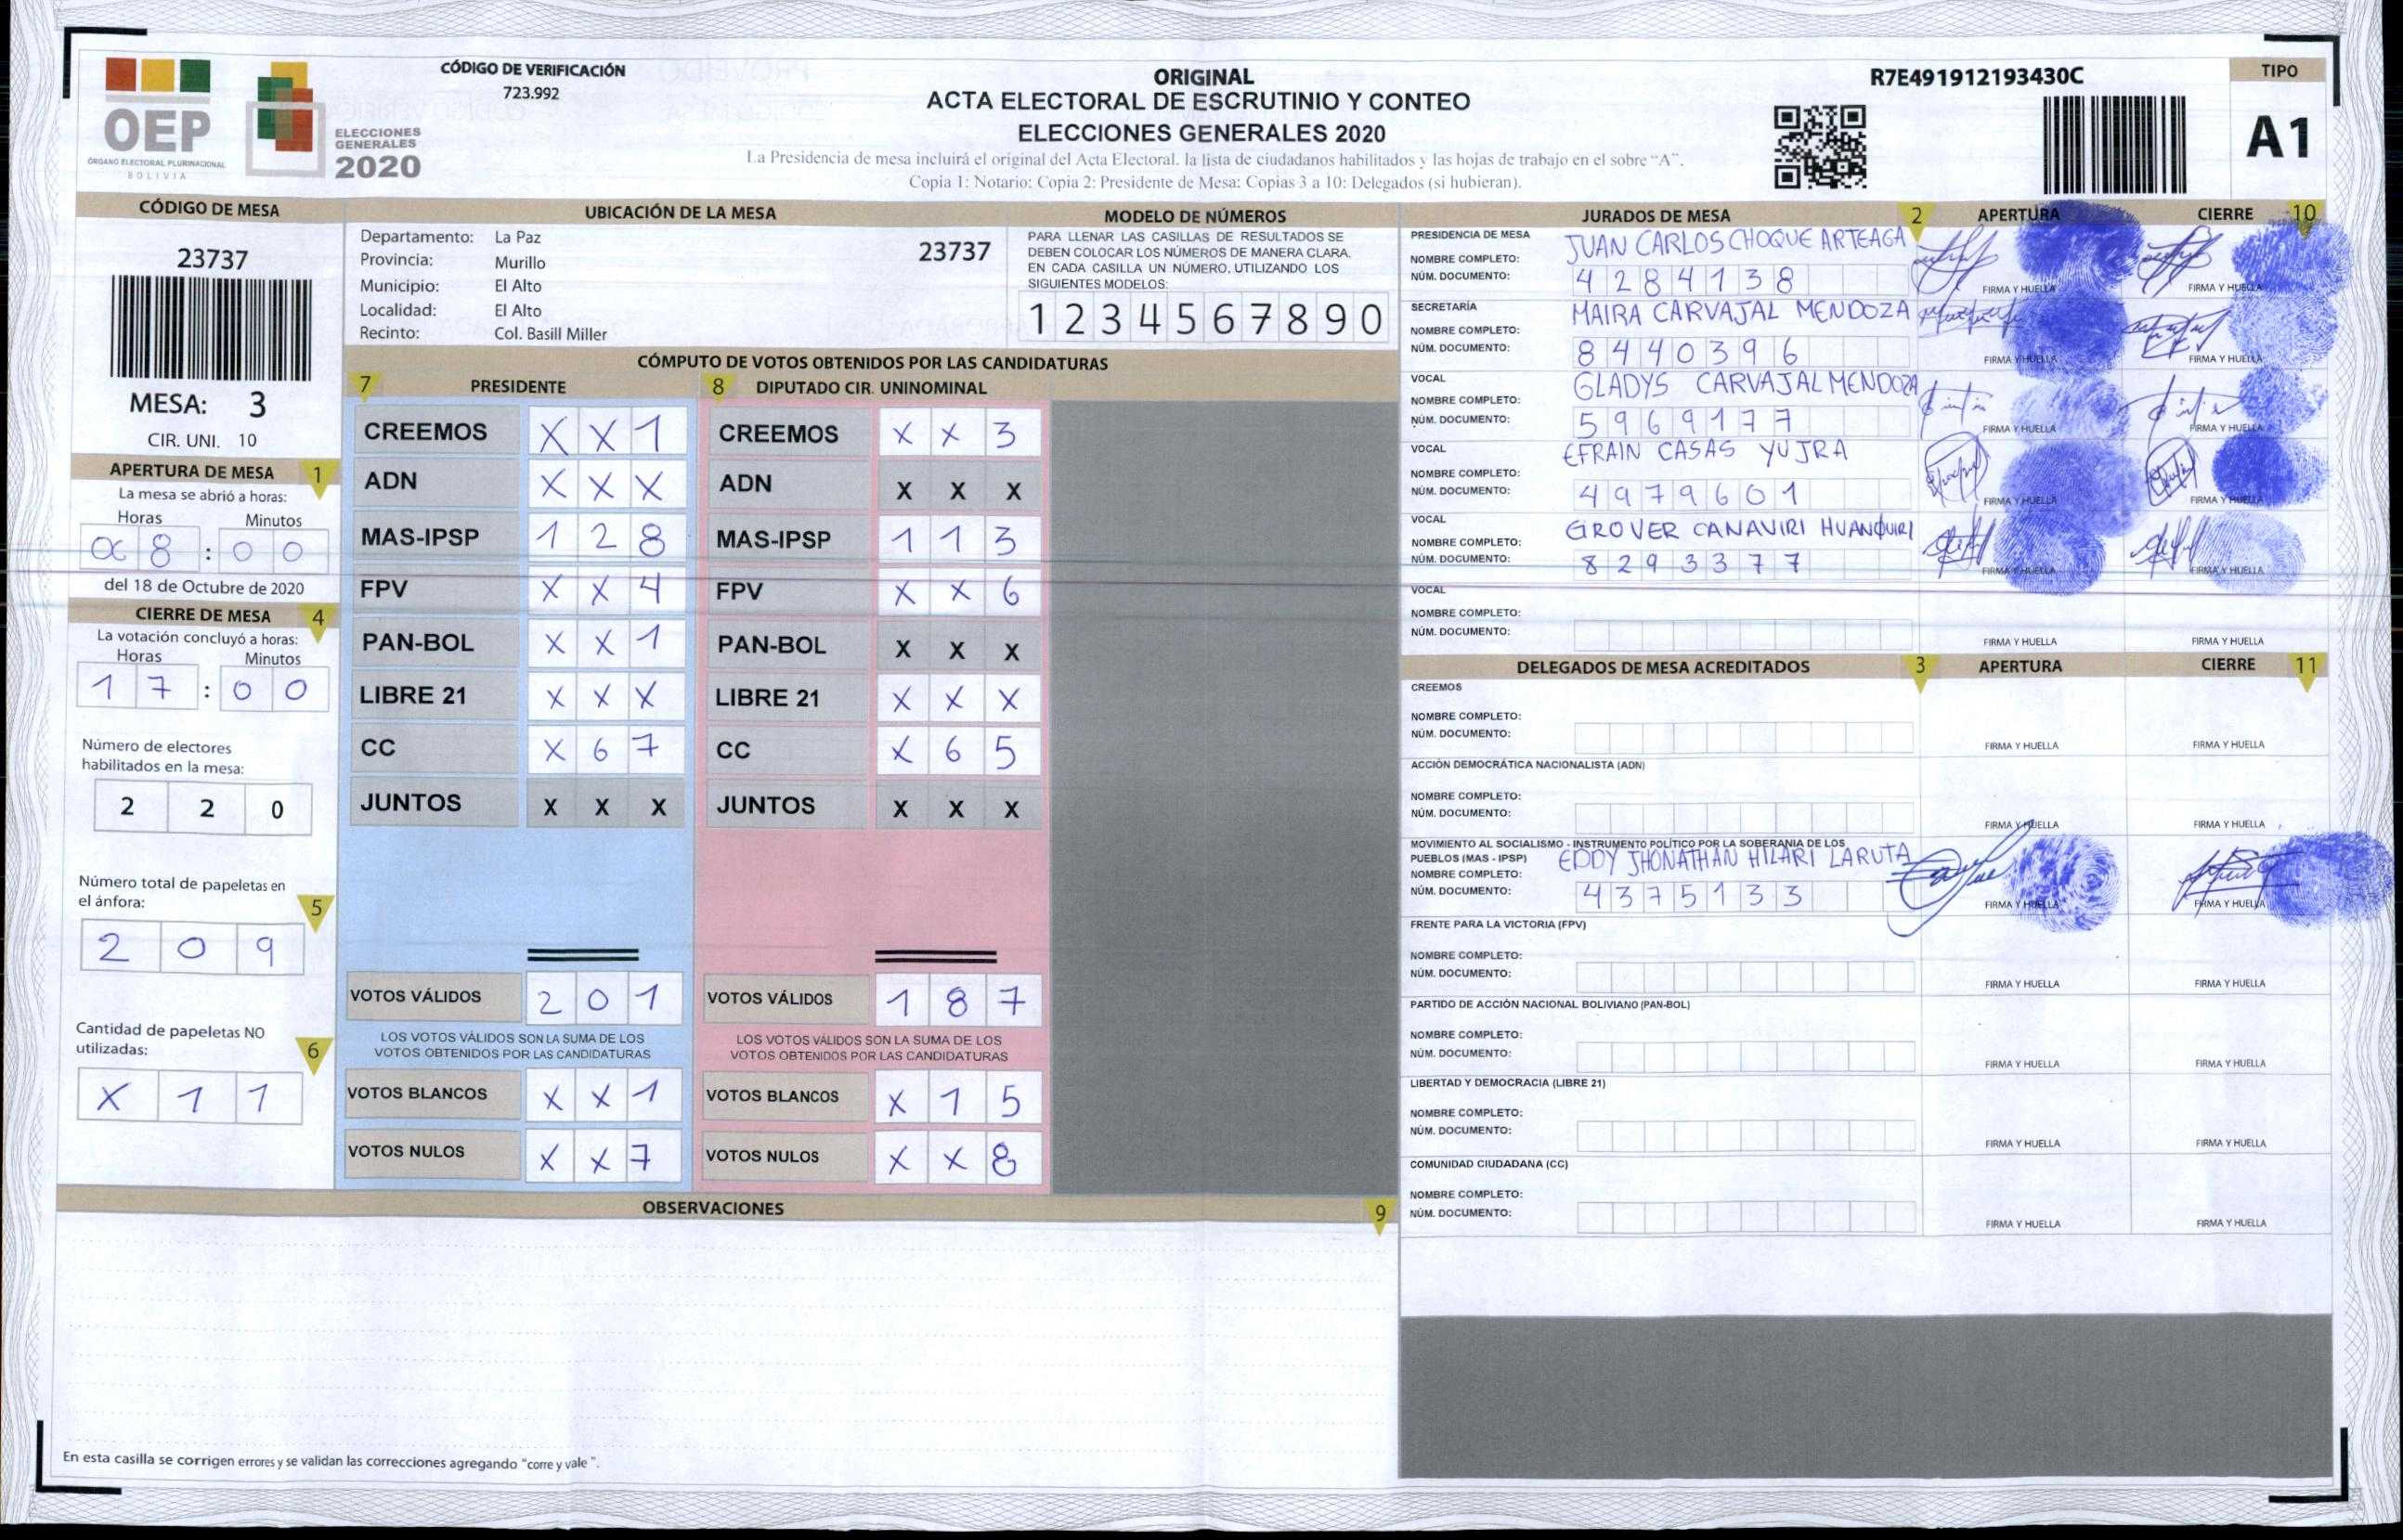 OEP
ÓRGANO ELECTORAL PLURINACIONAL
BOLIVIA
ELECCIONES
GENERALES
2020
CÓDIGO DE VERIFICACIÓN
723.992
ORIGINAL
ACTA ELECTORAL DE ESCRUTINIO Y CONTEO
ELECCIONES GENERALES 2020
La Presidencia de mesa incluirá el original del Acta Electoral. la lista de ciudadanos habilitados y las hojas de trabajo en el sobre "A".
Copia 1: Notario: Copia 2: Presidente de Mesa: Copias 3 a 10: Delegados (si hubieran).
R7E491912193430C
TIPO
A1
CÓDIGO DE MESA
23737
MESA: 3
CIR. UNI. 10
APERTURA DE MESA 1
La mesa se abrió a horas:
Horas Minutos
8 : 0 0
del 18 de Octubre de 2020
CIERRE DE MESA 4
La votación concluyó a horas:
Horas Minutos
1 7 : 0 0
Número de electores
habilitados en la mesa:
2 2 0
Número total de papeletas en
el ánfora: 5
2 0 9
Cantidad de papeletas NO
utilizadas: 6
X 1 1
UBICACIÓN DE LA MESA
Departamento: La Paz
Provincia: Murillo
Municipio: El Alto
Localidad: El Alto
Recinto: Col. Basill Miller
23737
MODELO DE NÚMEROS
PARA LLENAR LAS CASILLAS DE RESULTADOS SE
DEBEN COLOCAR LOS NÚMEROS DE MANERA CLARA.
EN CADA CASILLA UN NÚMERO, UTILIZANDO LOS
SIGUIENTES MODELOS:
1 2 3 4 5 6 7 8 9 0
CÓMPUTO DE VOTOS OBTENIDOS POR LAS CANDIDATURAS
7 PRESIDENTE
CREEMOS X X 1
ADN X X X
MAS-IPSP 1 2 8
FPV X X 4
PAN-BOL X X 1
LIBRE 21 X X X
CC X 6 7
JUNTOS X X X
VOTOS VÁLIDOS 2 0 1
LOS VOTOS VÁLIDOS SON LA SUMA DE LOS
VOTOS OBTENIDOS POR LAS CANDIDATURAS
VOTOS BLANCOS X X 1
VOTOS NULOS X X 7
8 DIPUTADO CIR. UNINOMINAL
CREEMOS X X 3
ADN X X X
MAS-IPSP 1 1 3
FPV X X 6
PAN-BOL X X X
LIBRE 21 X X X
CC X 6 5
JUNTOS X X X
VOTOS VÁLIDOS 1 8 7
LOS VOTOS VÁLIDOS SON LA SUMA DE LOS
VOTOS OBTENIDOS POR LAS CANDIDATURAS
VOTOS BLANCOS X 1 5
VOTOS NULOS X X 8
OBSERVACIONES 9
En esta casilla se corrigen errores y se validan las correcciones agregando "corre y vale".
JURADOS DE MESA 2 APERTURA CIERRE 10
PRESIDENCIA DE MESA
NOMBRE COMPLETO: JUAN CARLOS CHOQUE ARTEAGA
NÚM. DOCUMENTO: 4 2 8 4 1 3 8
FIRMA Y HUELLA FIRMA Y HUELLA
SECRETARÍA
NOMBRE COMPLETO: MAIRA CARVAJAL MENDOZA
NÚM. DOCUMENTO: 8 4 4 0 3 9 6
FIRMA Y HUELLA FIRMA Y HUELLA
VOCAL
NOMBRE COMPLETO: GLADYS CARVAJAL MENDOZA
NÚM. DOCUMENTO: 5 9 6 9 1 7 7
FIRMA Y HUELLA FIRMA Y HUELLA
VOCAL
NOMBRE COMPLETO: EFRAIN CASAS YUJRA
NÚM. DOCUMENTO: 4 9 7 9 6 0 1
FIRMA Y HUELLA FIRMA Y HUELLA
VOCAL
NOMBRE COMPLETO: GROVER CANAVIRI HUANQUIRI
NÚM. DOCUMENTO: 8 2 9 3 3 7 7
FIRMA Y HUELLA FIRMA Y HUELLA
VOCAL
NOMBRE COMPLETO:
NÚM. DOCUMENTO:
FIRMA Y HUELLA FIRMA Y HUELLA
DELEGADOS DE MESA ACREDITADOS 3 APERTURA CIERRE 11
CREEMOS
NOMBRE COMPLETO:
NÚM. DOCUMENTO:
FIRMA Y HUELLA FIRMA Y HUELLA
ACCIÓN DEMOCRÁTICA NACIONALISTA (ADN)
NOMBRE COMPLETO:
NÚM. DOCUMENTO:
FIRMA Y HUELLA FIRMA Y HUELLA
MOVIMIENTO AL SOCIALISMO - INSTRUMENTO POLÍTICO POR LA SOBERANIA DE LOS
PUEBLOS (MAS - IPSP) EDDY JHONATHAN HILARI LARUTA
NOMBRE COMPLETO:
NÚM. DOCUMENTO: 4 3 7 5 1 3 3
FIRMA Y HUELLA FIRMA Y HUELLA
FRENTE PARA LA VICTORIA (FPV)
NOMBRE COMPLETO:
NÚM. DOCUMENTO:
FIRMA Y HUELLA FIRMA Y HUELLA
PARTIDO DE ACCIÓN NACIONAL BOLIVIANO (PAN-BOL)
NOMBRE COMPLETO:
NÚM. DOCUMENTO:
FIRMA Y HUELLA FIRMA Y HUELLA
LIBERTAD Y DEMOCRACIA (LIBRE 21)
NOMBRE COMPLETO:
NÚM. DOCUMENTO:
FIRMA Y HUELLA FIRMA Y HUELLA
COMUNIDAD CIUDADANA (CC)
NOMBRE COMPLETO:
NÚM. DOCUMENTO:
FIRMA Y HUELLA FIRMA Y HUELLA